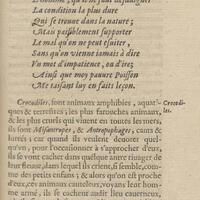 La condition la plus dure
Qui se trouue dans la nature;
Mais paisiblement supporter
Le mal qu'on ne peut euiter,
Sans qu'on vienne iamais à dire
Vn mot d'impatience, ou d'ire;
Ainsi que moy pauure Poisson
Me taisant luy en faits leçon.
Crocodiles, sont animaux amphibies, aquati-
ques & terrestres; les plus farouches animaux,
& les plus cruels qui viuent en toutes les mers,
ils sont Misantropes, & Antropophages; cauts &
rusés; car quand ils veulent deuorer quel-
qu'vn, pour l'occasionner à s'approcher d'eux,
ils se vont cacher dans quelque antre riuager de
leur fleuue, dans lequel ils crient,
me des petits enfans; & alors qu'on est proche
d'eux, ces animaux cauteleux, voyans leur hom-
me armé, ils se cachent audit lieu cauerneux,
Crocodi-
les.